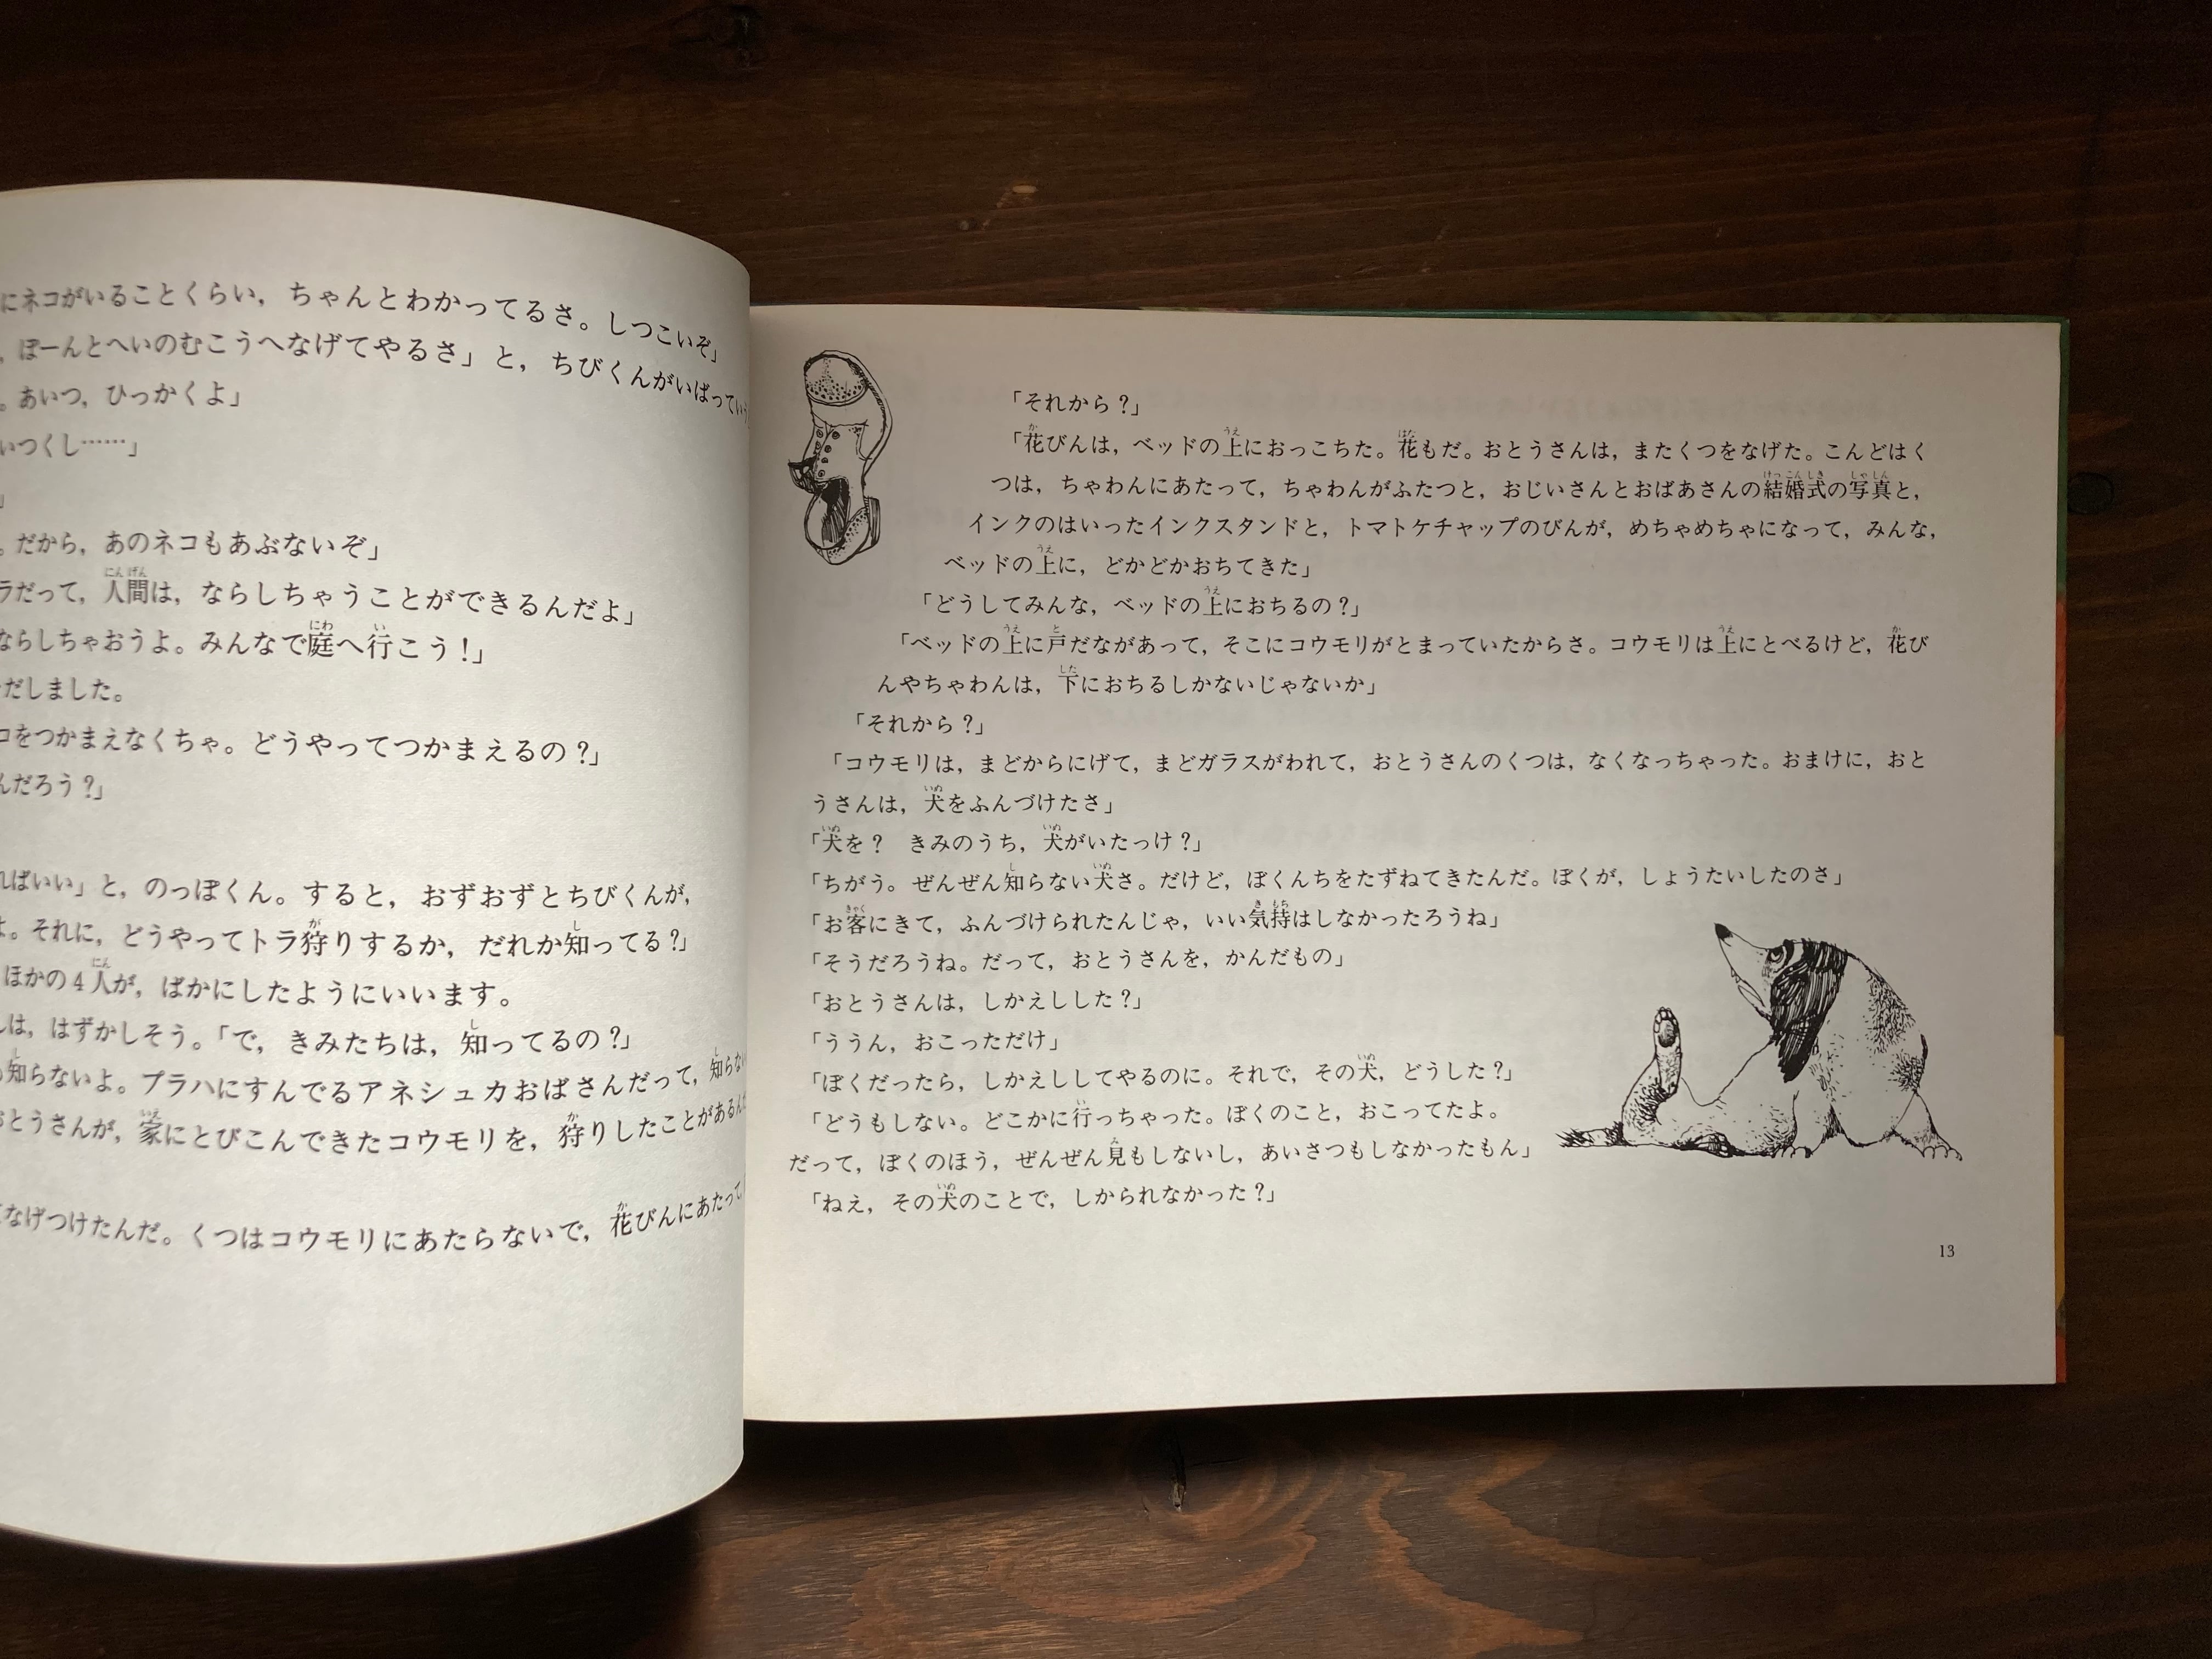 にネコがいることくらい，ちゃんとわかってるさ。しつこいぞ」
，ぽーんとへいのむこうへなげてやるさ」と，ちびくんがいばってい
。あいつ，ひっかくよ」
いつくし……」
」
。だから，あのネコもあぶないぞ」
ラだって，人間は，ならしちゃうことができるんだよ」
ならしちゃおうよ。みんなで庭へ行こう！」
だしました。
コをつかまえなくちゃ。どうやってつかまえるの？」
んだろう？」
ればいい」と，のっぽくん。すると，おずおずとちびくんが，
よ。それに，どうやってトラ狩りするか，だれか知ってる？」
ほかの４人が，ばかにしたようにいいます。
は，はずかしそう。「で，きみたちは，知ってるの？」
知らないよ。プラハにすんでるアネシュカおばさんだって，知らな
おとうさんが，家にとびこんできたコウモリを，狩りしたことがあるん
なげつけたんだ。くつはコウモリにあたらないで，花びんにあたって
「それから？」
「花びんは，ベッドの上におっこちた。花もだ。おとうさんは，またくつをなげた。こんどはく
つは，ちゃわんにあたって，ちゃわんがふたつと，おじいさんとおばあさんの結婚式の写真と，
インクのはいったインクスタンドと，トマトケチャップのびんが，めちゃめちゃになって，みんな，
ベッドの上に，どかどかおちてきた」
「どうしてみんな，ベッドの上におちるの？」
「ベッドの上に戸だながあって，そこにコウモリがとまっていたからさ。コウモリは上にとべるけど，花び
んやちゃわんは，下におちるしかないじゃないか」
「それから？」
「コウモリは，まどからにげて，まどガラスがわれて，おとうさんのくつは，なくなっちゃった。おまけに，おと
うさんは，犬をふんづけたさ」
「犬を？　きみのうち，犬がいたっけ？」
「ちがう。ぜんぜん知らない犬さ。だけど，ぼくんちをたずねてきたんだ。ぼくが，しょうたいしたのさ」
「お客にきて，ふんづけられたんじゃ，いい気持はしなかったろうね」
「そうだろうね。だって，おとうさんを，かんだもの」
「おとうさんは，しかえしした？」
「ううん，おこっただけ」
「ぼくだったら，しかえししてやるのに。それで，その犬，どうした？」
「どうもしない。どこかに行っちゃった。ぼくのこと，おこってたよ。
だって，ぼくのほう，ぜんぜん見もしないし，あいさつもしなかったもん」
「ねえ，その犬のことで，しかられなかった？」
13